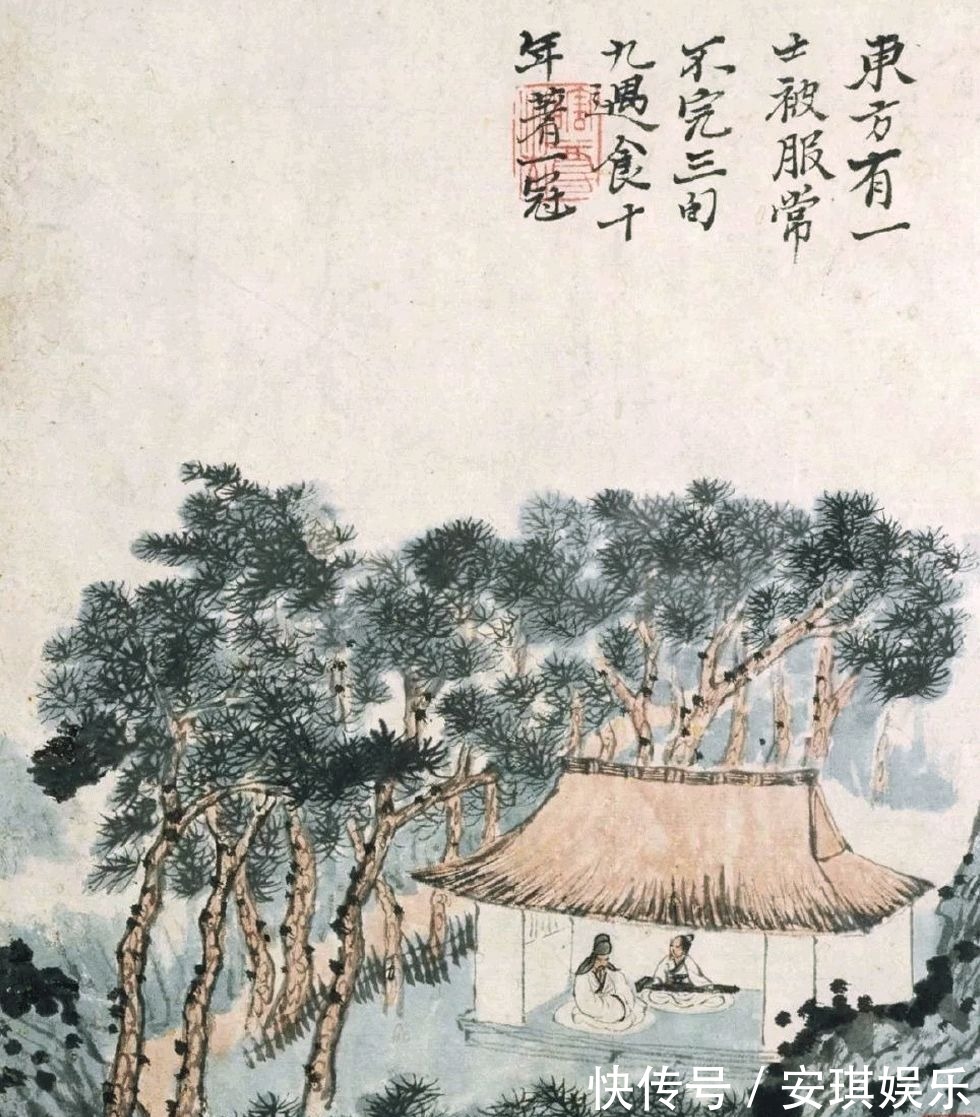 東方有一
士被服常
不完三旬
九遇食十
年著一冠
快传号 / 安琪娱乐